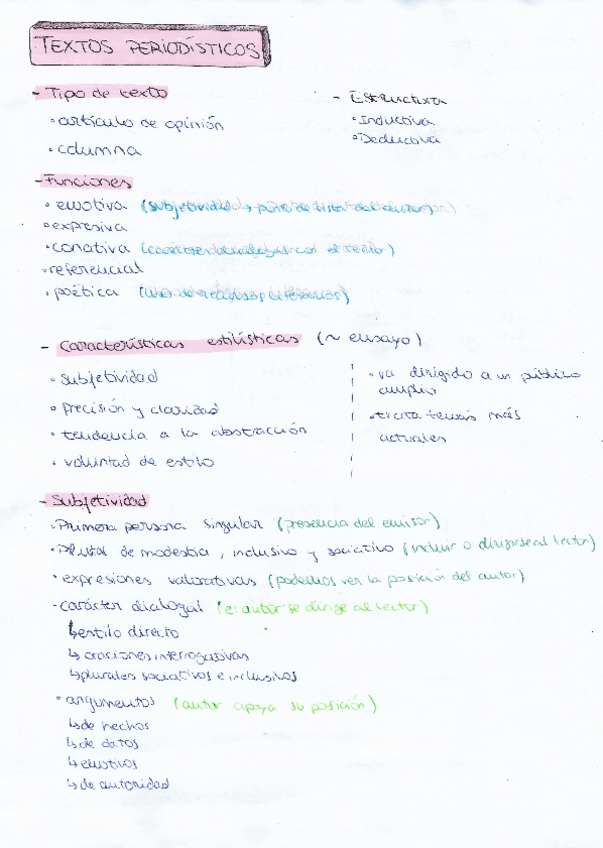 TEXTOS PERIODÍSTICOS
- Tipo de texto
• artículo de opinión
• columna
- Estructura
• Inductiva
• Deductiva
- Funciones
• emotiva (subjetividad → punto de vista del autor)
• expresiva
• conativa (carácter dialogal con el texto)
• referencial
• poética (uso de recursos literarios)
- Características estilísticas (~ ensayo)
• subjetividad
• Precisión y claridad
• tendencia a la abstracción
• voluntad de estilo
• va dirigido a un público
amplio
• trata temas más
actuales
- Subjetividad
• Primera persona singular (presencia del emisor)
• Plural de modestia, inclusivo y sociativo (incluir o dirigirse al lector)
• expresiones valorativas (podemos ver la posición del autor)
- carácter dialogal (el autor se dirige al lector)
↳ estilo directo
↳ oraciones interrogativas
↳ plurales sociativos e inclusivos
• argumentos (autor apoya su posición)
↳ de hechos
↳ de datos
↳ emotivos
↳ de autoridad